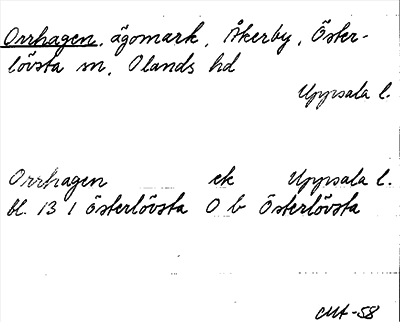 Orrhagen, ägomark, Åkerby, Öster-
lövsta sn, Olands hd
Uppsala l.
Orrhagen ek Uppsala l.
bl. 13 I Österlövsta O b Österlövsta
-58